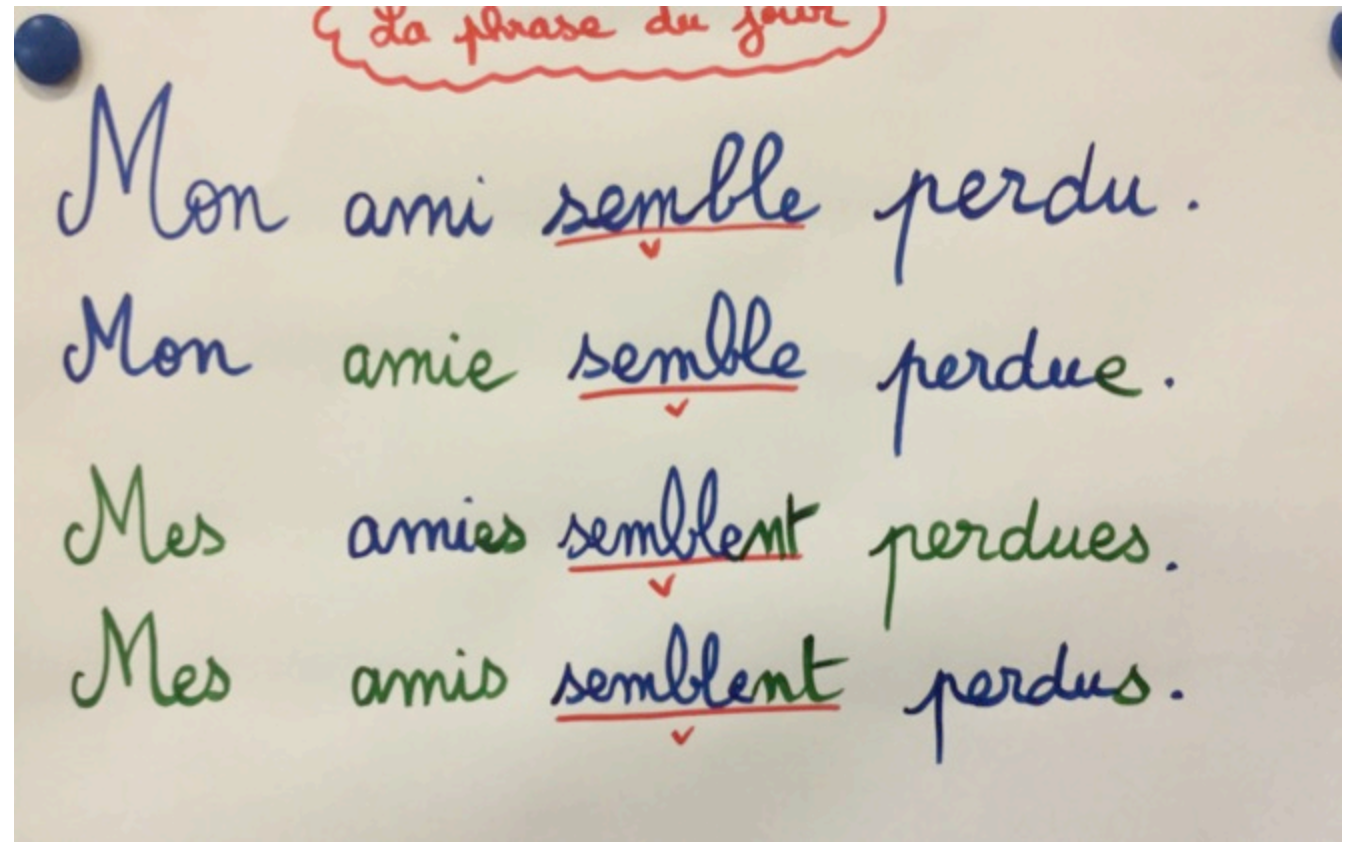 La phrase du jour
Mon ami semble perdu.
Mon amie semble perdue.
Mes amies semblent perdues.
Mes amis semblent perdus.